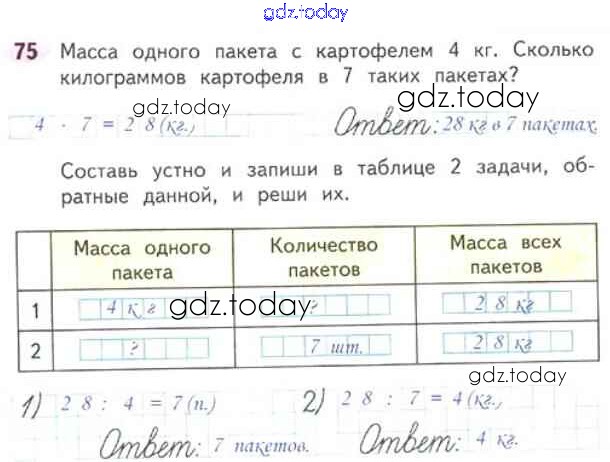 gdz.today
75 Масса одного пакета с картофелем 4 кг. Сколько
килограммов картофеля в 7 таких пакетах?
gdz.today
gdz.today
4 · 7 = 2 8 (кг.) Ответ: 28 кг в 7 пакетах.
Составь устно и запиши в таблице 2 задачи, об-
ратные данной, и реши их.
Масса одного пакета Количество пакетов Масса всех пакетов
1 4 к г gdz.today ? 2 8 кг
2 ? 7 шт. 2 8 кг
gdz.today
1) 2 8 : 4 = 7 (п.) 2) 2 8 : 7 = 4 (кг.)
Ответ: 7 пакетов. Ответ: 4 кг.